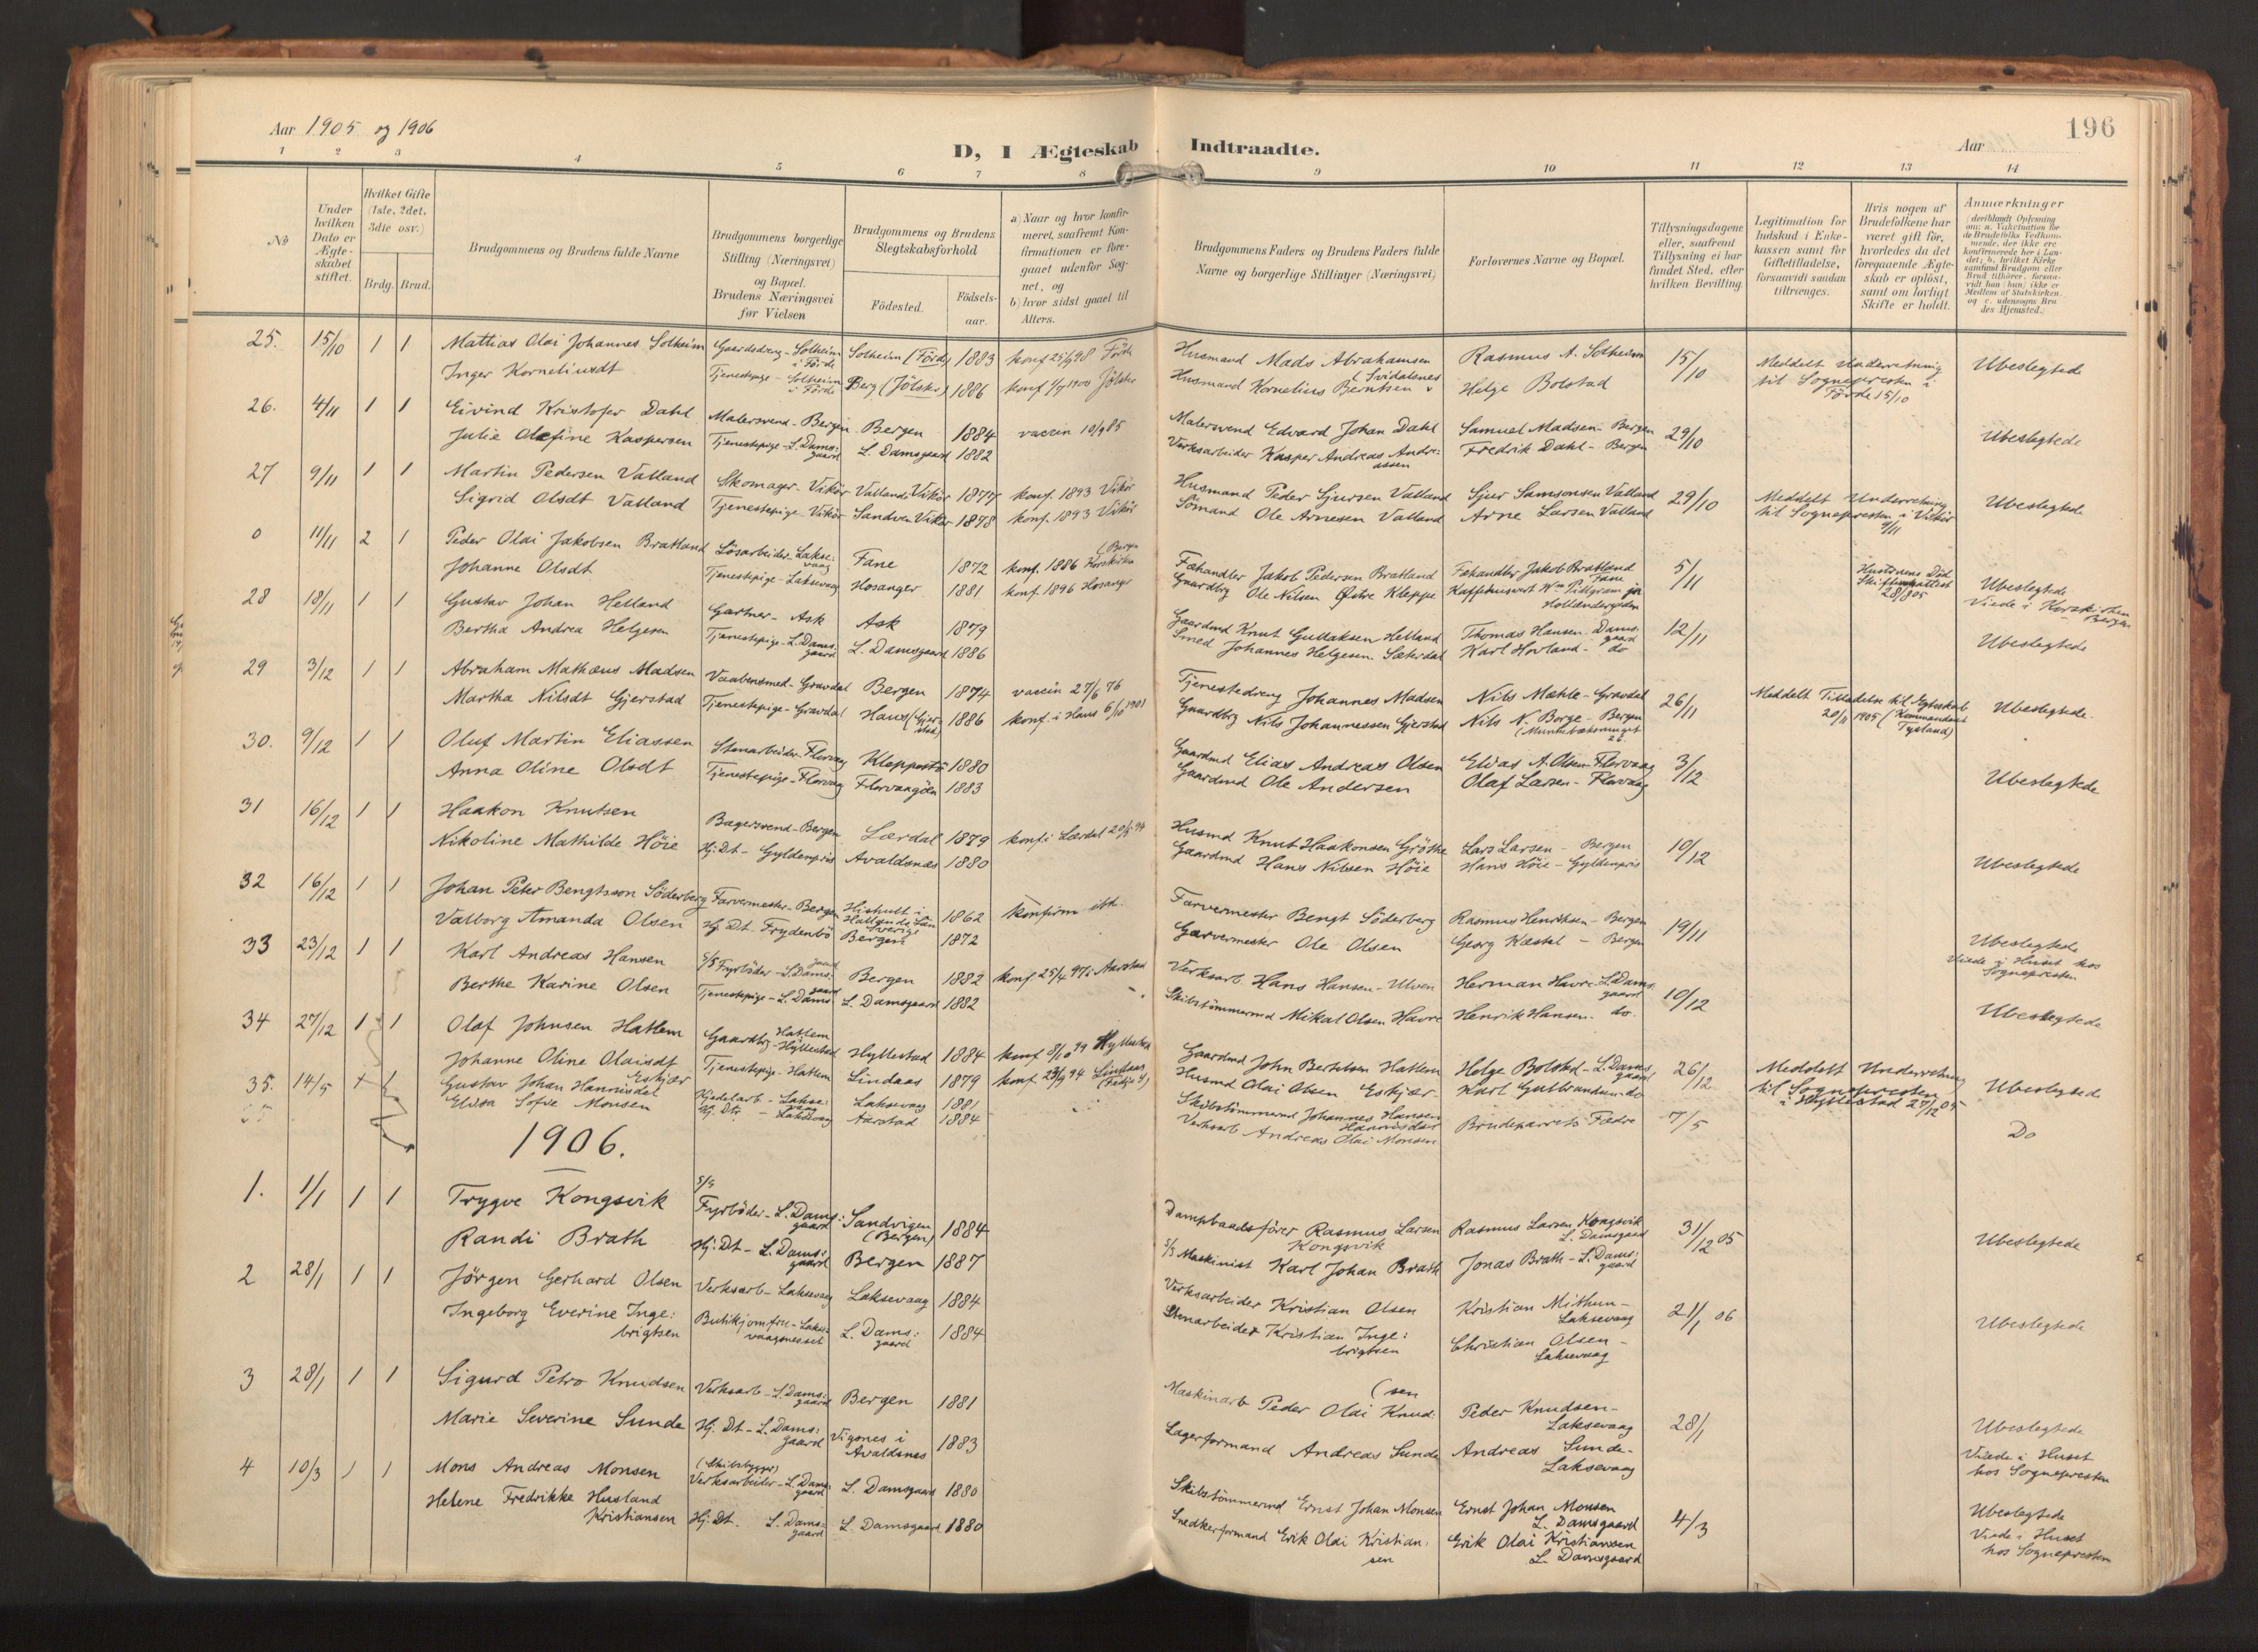 Aar 1905 og 1906
D, I Ægteskab Indtraadte.
Aar
196
1 2 3 4 5 6 7 8 9 10 11 12 13 14
No
Under hvilken Dato er Ægteskabet stiftet.
Hvilket Gifte (1ste, 2det, 3die osv.)
Brdg. Brud.
Brudgommens og Brudens fulde Navne
Brudgommens borgerlige Stilling (Næringsvei) og Bopæl. Brudens Næringsvei før Vielsen
Brudgommens og Brudens Slegtskabsforhold
Födested.
Födselsaar.
a) Naar og hvor konfirmeret, saafremt Konfirmationen er foregaaet udenfor Sognet, og
b) hvor sidst gaaet til Alters.
Brudgommens Faders og Brudens Faders fulde Navne og borgerlige Stillinger (Næringsvei)
Forlovernes Navne og Bopæl.
Tillysningsdagene eller, saafremt Tillysning ei har fundet Sted, efter hvilken Bevilling.
Legitimation for Indskud i Enkekassen samt for Giftetilladelse, forsaavidt saadan tiltrænges.
Hvis nogen af Brudefolkene har været gift för, hvorledes da det foregaaende Ægteskab er oplöst, samt om lovligt Skifte er holdt.
Anmærkninger
25. 15/10 1 1 Mattias Olai Johannes Solheim Gaardsdreng - Solheim i Förde Solheim (Förde) 1883 konf 25/9 98 Förde Husmand Mads Abrahamsen Rasmus A. Solheim 15/10 Meddelt Underretning til Sognepresten i Förde 15/10 Ubeslegtede
Inger Korneliusdt Tjenestepige - Solheim i Förde Berg (Jölster) 1886 Jölster Husmand Kornelius Berntsen (Svidalsnes Helge Bolstad
26. 4/11 1 1 Eivind Kristofer Dahl Malersvend - Bergen Bergen 1884 vaccin 10/9 85 Malersvend Edvard Johan Dahl Samuel Madsen - Bergen 29/10 Ubeslegtede
Julie Olefine Kaspersen Tjenestepige - L. Damsgaard L. Damsgaard 1882 Verksarbeider Kasper Andreas Andreassen Fredrik Dahl - Bergen
27 9/11 1 1 Martin Pedersen Vatland Skomager - Vikör Vatland Vikör 1877 konf. 1893 Vikör Husmand Peder Sjursen Vatland Sjur Samsonsen Vatland 29/10 Meddelt Underretning til Sognepresten i Vikör 9/11 Ubeslegtede
Sigrid Olsdt Vatland Tjenestepige - Vikör Sandven Vikör 1878 konf. 1893 Vikör Sömand Ole Arnesen Vatland Arne Larsen Vatland
0 11/11 2 1 Peder Olai Jakobsen Bratland Lösarbeider - Laksevaag Fane 1872 konf. 1886 Korskirken (Bergen Fæhandler Jakob Pedersen Bratland Fæhandler Jakob Bratland Fane 5/11 Hustruens Död Skifteattest 28/8 05 Ubeslegtede Viede i Korskirken Bergen
Johanne Olsdt Tjenestepige - Laksevaag Hosanger 1881 konf. 1896 Hosanger Gaardbrg Ole Nilsen Østre Kleppe Kaffehusvert Wm Pillgram jr Hollændergaden
28 18/11 1 1 Gustav Johan Hetland Gartner - Ask Ask 1879 Gaardmd Knut Gullaksen Hetland Thomas Hansen - Damsgaard 12/11 Ubeslegtede
Bertha Andrea Helgesen Tjenestepige - L. Damsgaard L. Damsgaard 1886 Smed Johannes Helgesen Sæterdal Karl Hovland - do
29 3/12 1 1 Abraham Mathæus Madsen Vaabensmed - Gravdal Bergen 1874 vaccin 27/6 76 Tjenestedreng Johannes Madsen Nils Mæhle - Gravdal 26/11 Meddelt Tilladelse til Egteskab 20/11 1905 (Kommandant Tysland) Ubeslegtede.
Martha Nilsdt Gjerstad Tjenestepige - Gravdal Haus (Gjerstad) 1886 konf. i Haus 6/10 1901 Gaardbrg Nils Johannessen Gjerstad Nils N. Borge - Bergen (Munkebæksmuget 26
30. 9/12 1 1 Oluf Martin Eliassen Stenarbeider - Florvaag Kleppestö 1880 Gaardmd Elias Andreas Olsen Elias A. Olsen - Florvaag 3/12 Ubeslegtede
Anna Oline Olsdt Tjenestepige - Florvaag Florvaagöen 1883 Gaardmd Ole Andersen Olaf Larsen - Florvaag
31 16/12 1 1 Haakon Knutsen Bagersvend - Bergen Lærdal 1879 konf. i Lærdal 20/5 94 Husmd Knut Haakonsen Gröthe Lars Larsen - Bergen 10/12 Ubeslegtede
Nikoline Mathilde Höie Hj: Dt - Gyldenpris Avaldsnæs 1880 Gaardmd Hans Nilsen Höie Hans Höie - Gyldenpris
32 16/12 1 1 Johan Peter Bengtsson Söderberg Farvermester - Bergen Hishult i Hallands Län Sverige 1862 Konfirm. Farvermester Bengt Söderberg Rasmus Henriksen - Bergen 19/11 Ubeslegtede Viede i Huset hos Sognepresten
Valborg Amanda Olsen Hj. Dt. Frydenbö Bergen 1872 Garvermester Ole Olsen Georg Kæstel - Bergen
33 23/12 1 1 Karl Andreas Hansen S/S Fyrböder - L. Damsgaard Bergen 1882 konf 25/4 97 i Aarstad Verksarb. Hans Hansen - Ulven Herman Havre L. Damsgaard 10/12 Ubeslegtede
Berthe Karine Olsen Tjenestepige - L. Damsgaard L. Damsgaard 1882 Skibstömmermd Mikal Olsen Havre Henrik Hansen. do.
34 27/12 1 1 Olaf Johnsen Hatlem Gaardbrg - Hatlem Hyllestad Hyllestad 1884 konf 8/10 99 Hyllestad Gaardmd John Bertelsen Hatlem Helge Bolstad - L. Damsgaard 26/12 Meddelt Underretning til Sognepresten i Hyllestad 27/12 05 Ubeslegtede
Johanne Oline Olaisdt Eskjær Tjenestepige - Hatlem Lindaas 1879 konf. 23/9 94 Lindaas Husmd Olai Olsen Eskjær Karl Gulbrandsen - do
35. 14/5 Gustav Johan Hannisdal Kjedelarb - Laksevaag Laksevaag 1881 Skibstömmermd Johannes Hansen Hannisdal Brudeparrets Fædre 7/5 Do
Elisa Sofie Monsen Hj. Dtr - Laksevaag Aarstad 1884 Verksarb Andreas Olai Monsen
1906.
1. 1/1 1 1 Trygve Kongsvik S/S Fyrböder - L. Damsgaard Sandvigen (Bergen) 1884 Dampbaadsförer Rasmus Larsen Kongsvik Rasmus Larsen Kongsvik L. Damsgaard 31/12 05 Ubeslegtede
Randi Brath Hj: Dt - L. Damsgaard Bergen 1887 S/S Maskinist Karl Johan Brath Jonas Brath - L. Damsgaard
2 28/1 1 1 Jörgen Gerhard Olsen Verksarb - Laksevaag Laksevaag 1884 Verksarbeider Kristian Olsen Kristian Mithun - Laksevaag 21/1 06 Ubeslegtede
Ingeborg Everine Ingebrigtsen Butikjomfru - Laksevaagsnesset L. Damsgaard 1884 Stenarbeider Kristian Ingebrigtsen Christian Olsen - Laksevaag
3 28/1 1 1 Sigurd Petro Knudsen Verksarb - L. Damsgaard Bergen 1881 Maskinarb Peder Olai Knudsen Peder Knudsen - Laksevaag 28/1 Ubeslegtede Viede i Huset hos Sognepresten
Marie Severine Sunde Hj. Dt - L. Damsgaard Vigsnes i Avaldsnes 1883 Lagerformand Andreas Sunde Andreas Sunde - Laksevaag
4 10/3 1 1 Mons Andreas Monsen (Skibsbygger) Verksarbeider - L. Damsgaard L. Damsgaard 1880 Skibstömmermd Ernst Johan Monsen Ernst Johan Monsen L. Damsgaard 4/3 Ubeslegtede Viede i Huset hos Sognepresten
Helene Fredrikke Husland Kristiansen Hj: Dt. L. Damsgaard L. Damsgaard 1880 Snedkerformand Erik Olai Kristiansen Erik Olai Kristiansen L. Damsgaard